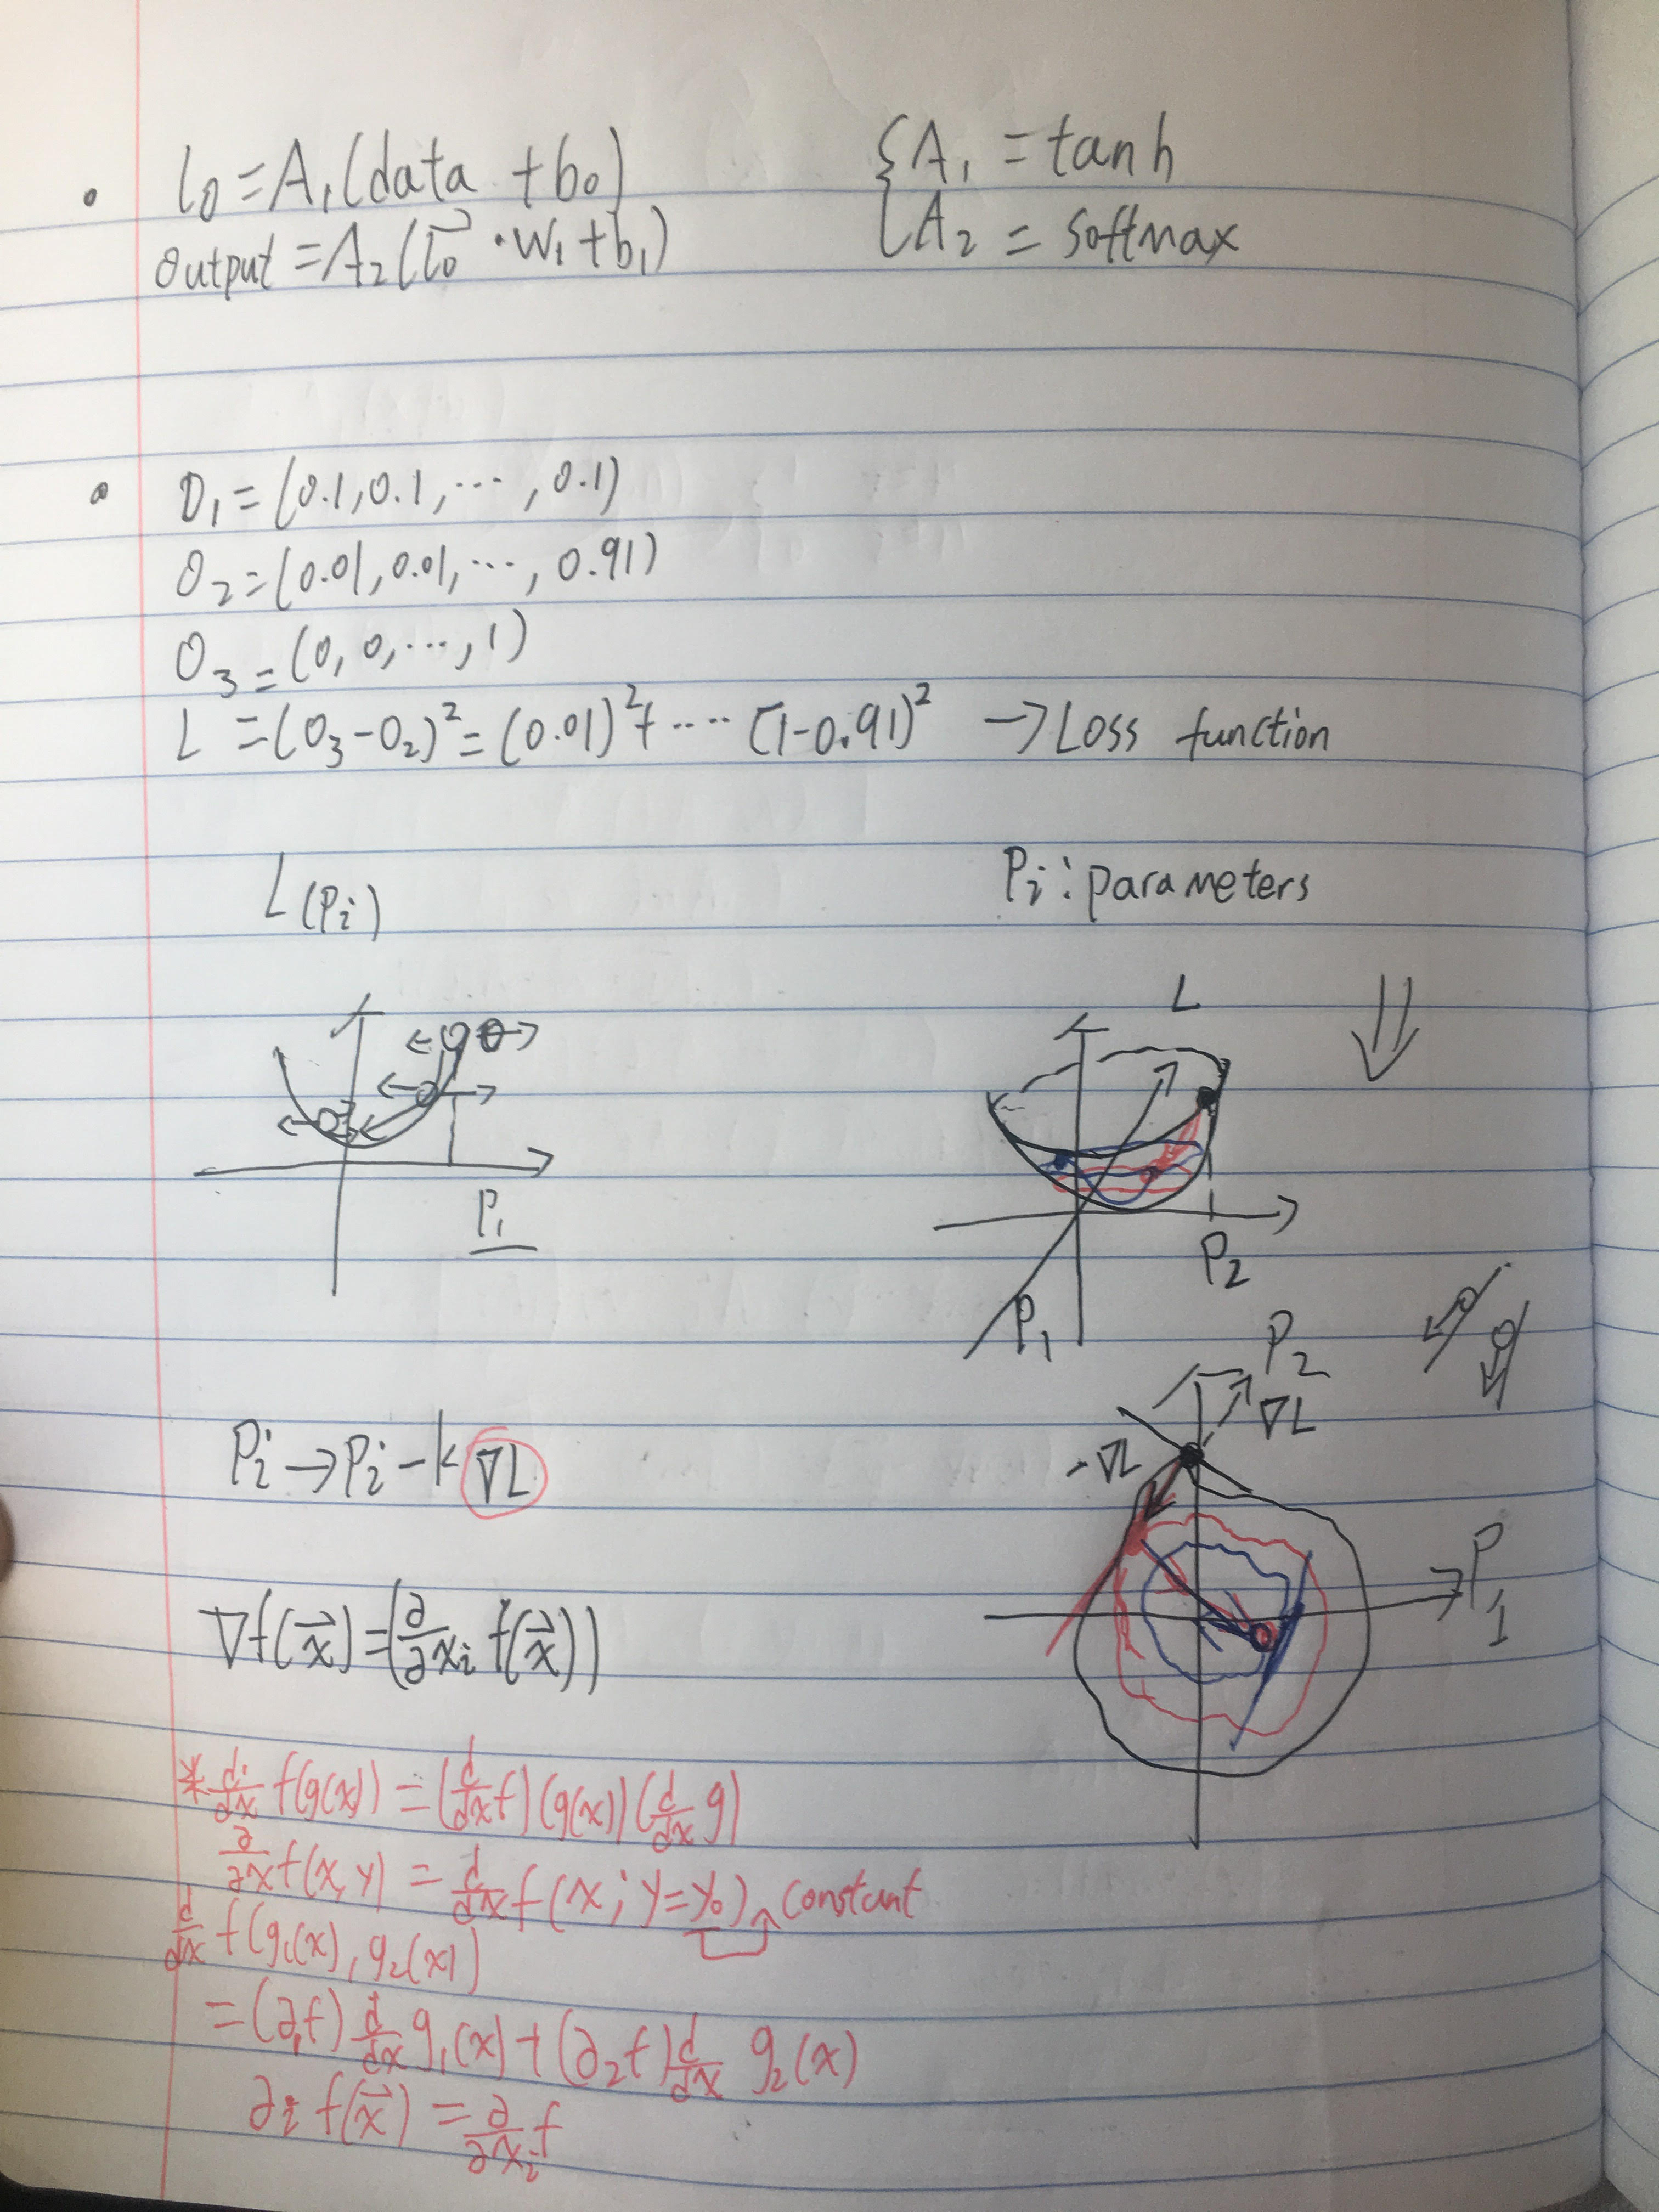 • l₀ = A₁(data + b₀)
output = A₂(l₀⃗ · W₁ + b₁)
{A₁ = tanh
A₂ = softmax
• O₁ = (0.1, 0.1, ⋯, 0.1)
O₂ = (0.01, 0.01, ⋯, 0.91)
O₃ = (0, 0, ⋯, 1)
L = (O₃ - O₂)² = (0.01)² + ⋯⋅ (1 - 0.91)² → Loss function
L(Pᵢ)
Pᵢ : parameters
P₁
L
P₂
P₁
Pᵢ → Pᵢ - k ∇L
P₂
∇L
-∇L
P₁
∇f(x⃗) = (∂/∂xᵢ f(x⃗))
* d/dx f(g(x)) = (d/dx f)(g(x))(d/dx g)
∂/∂x f(x, y) = d/dx f(x; y = y₀) constant
d/dx f(g₁(x), g₂(x))
= (∂₁f) d/dx g₁(x) + (∂₂f) d/dx g₂(x)
∂ᵢ f(x⃗) = ∂/∂xᵢ f